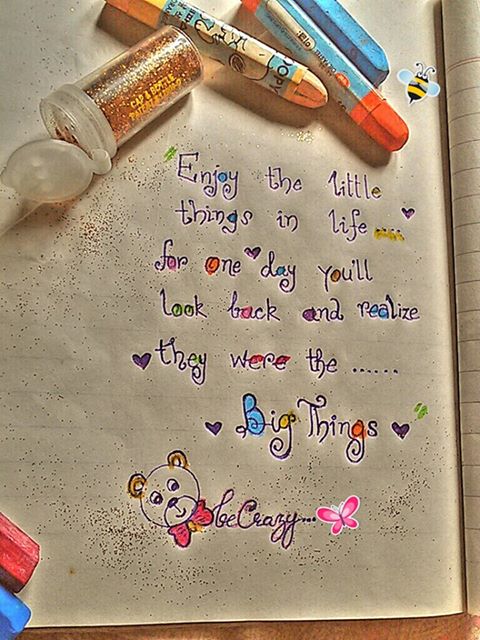 Enjoy the little
things in life .....
for one day you'll
look back and realize
they were the ......
Big Things
be Crazy...